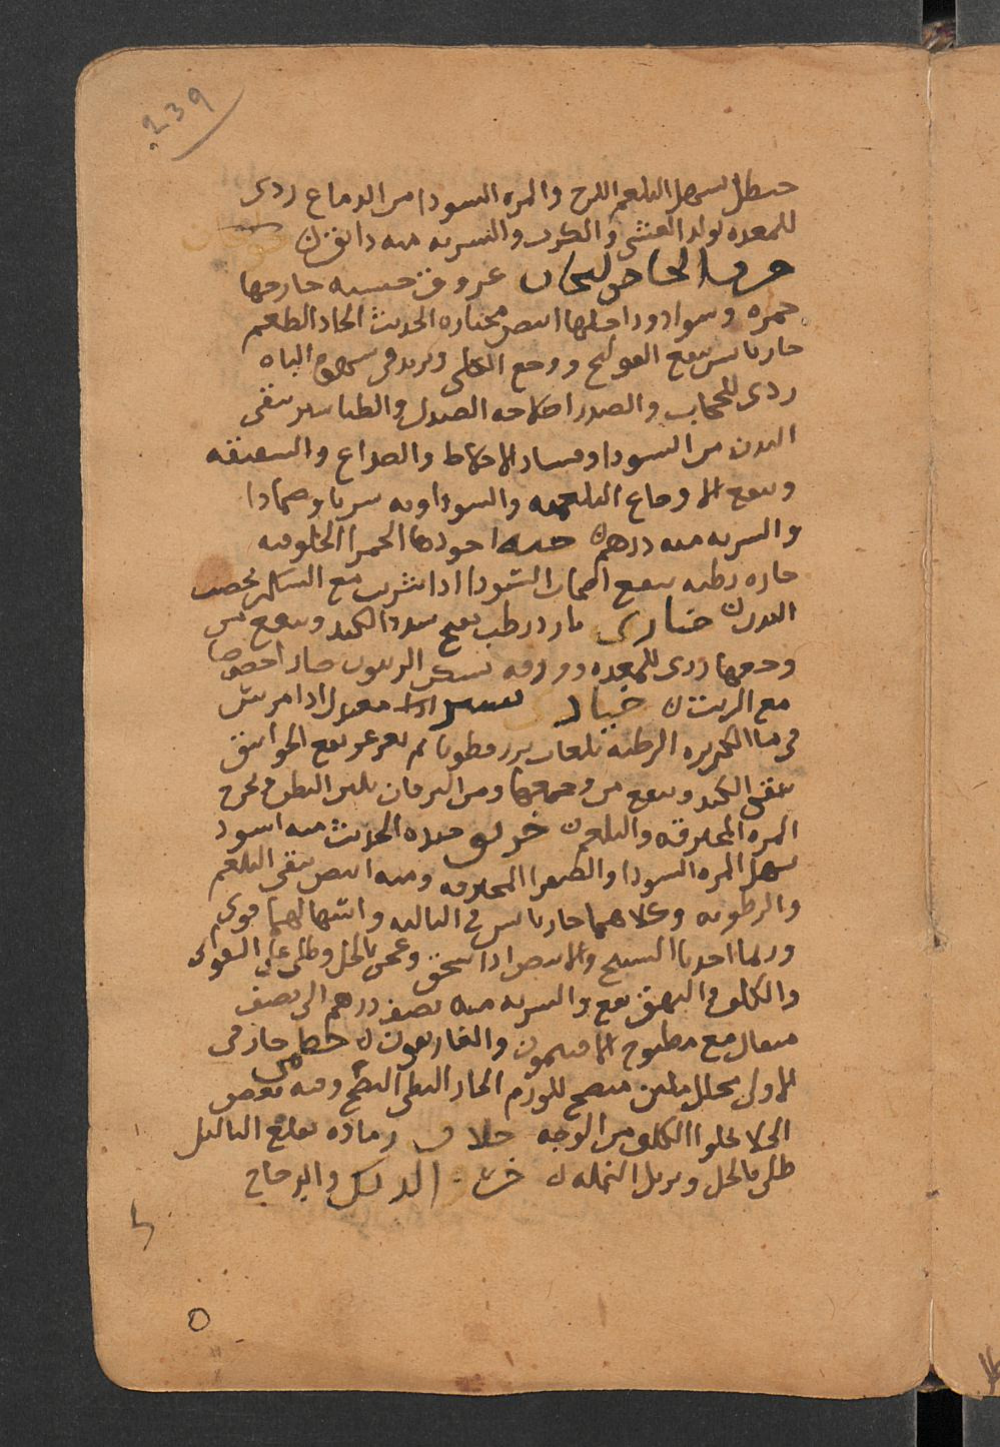 239
حنطل يسهل البلغم اللزج والمره السودا من الدماغ ردى
للمعده يولد الغشى والكرب والشربه منه دانق
حرف الخا خولنجان عروق خشبيه خارجها
حمره وسواد وداخلها ابيض مختاره الحديث الحاد الطعم
حار يابس ينفع القولنج ووجع الكلى ويزيد فى شهوة الباه
ردى للحجاب والصدر اصلاحه الصندل والطباشير ينقى
البدن من السودا وفساد الاخلاط والصداع والشقيقه
وينفع الاوجاع البلغميه والسوداويه شربا وضمادا
والشربه منه درهم اجودها الحمرا الخلوقيه
حاره رطبه ينفع اصحاب السودا اذا شرب مع السكر يخصب
البدن خبازى بارد رطب يفتح سدد الكبد وينفع من
وجعها ردى للمعده وورقه يسكن
مع الزيت خيار شنبر معتدل اذا مرس
فى ما الكزبره الرطبه بلعاب بزر قطونا ثم تغرغر نفع الخوانيق
ينقى الكبد وينفع من وجعها ومن اليرقان يلين البطن يخرج
المره المحترقه والبلغم خربق جيده الحديث منه اسود
يسهل المره السودا والصفرا المحترقه ومنه ابيض ينقى البلغم
والرطوبه وكلاهما حار يابس فى الثالثه واسهالهما قوى
وربما احدثا التشنج والابيض اذا سحق وعجن بالخل وطلى على القوابى
والكلف والبهق نفع والشربه منه نصف درهم الى نصف
مثقال مع مطبوخ الافتيمون والغاريقون خطمى حار فى
الاولى محلل ملين منضج للورم الحار البطى النضج وفيه بعض
الجلا يجلوا الكلف من الوجه خلاف رماده يقلع الثاليل
طلى بالخل ويزيل النمله خرو الديك والدجاج